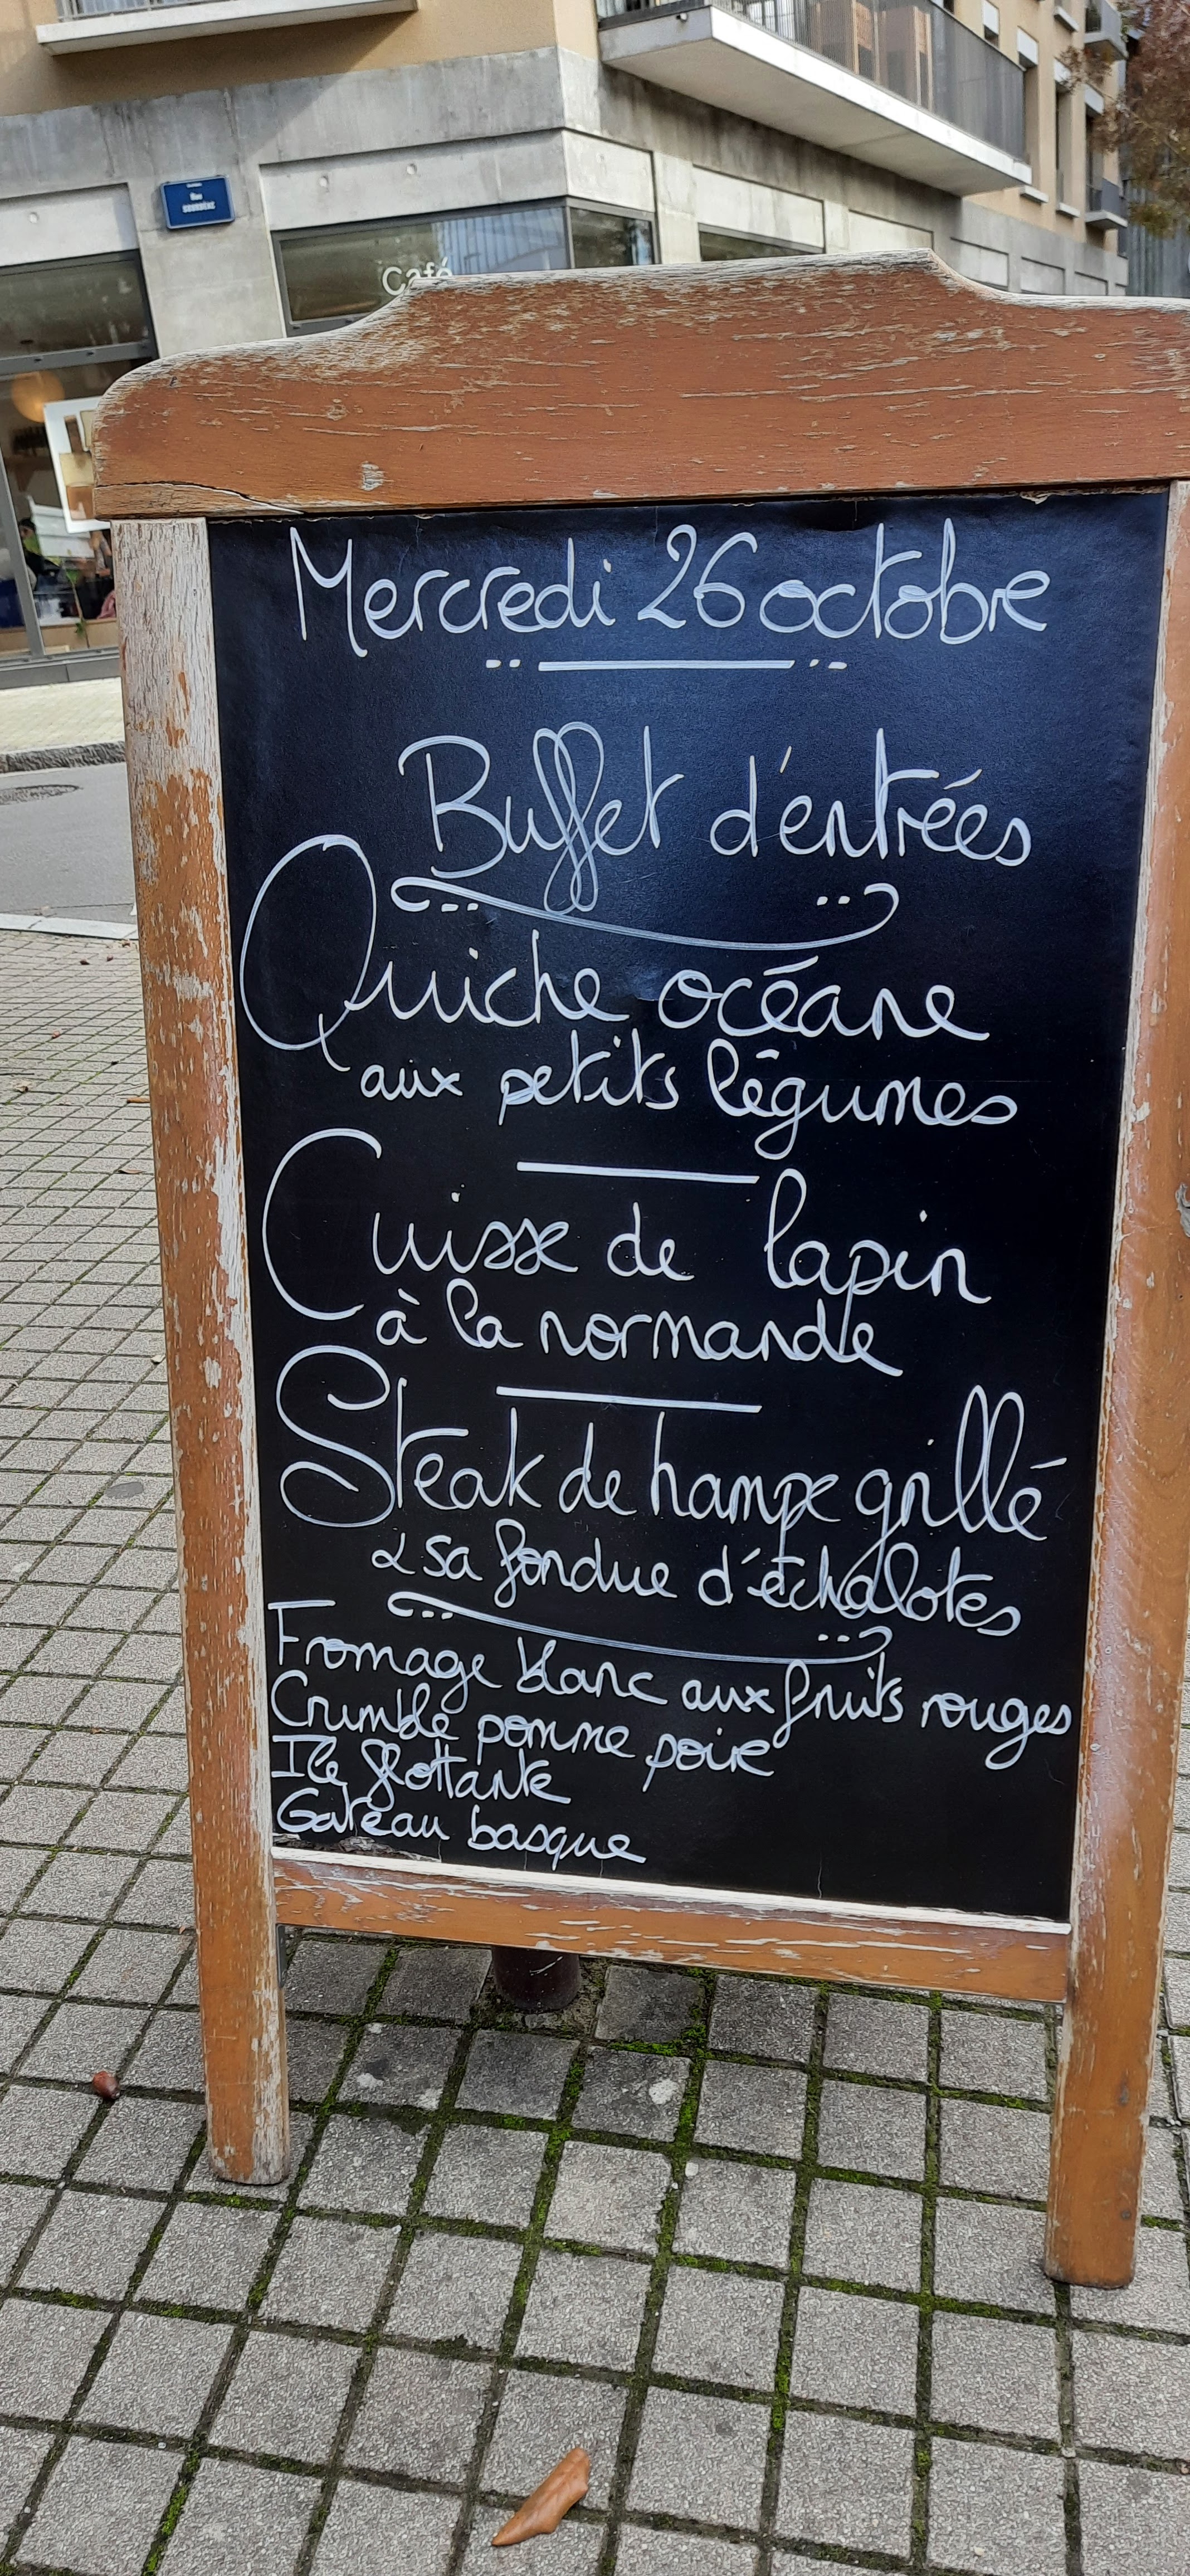 Rue
Café
Mercredi 26 octobre
Buffet d'entrées
Quiche océane
aux petits légumes
Cuisse de lapin
à la normande
Steak de hampe grillé
& sa fondue d'échalotes
Fromage blanc aux fruits rouges
Crumble pomme poire
Ile flottante
Gateau basque